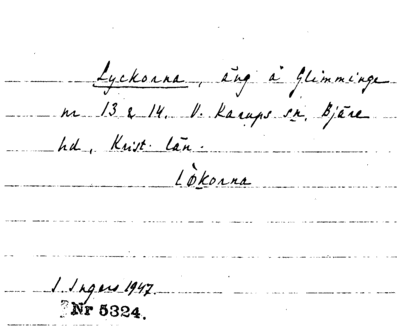 Lyckorna, äng å Glimminge
nr 13 & 14. V. Karups sn, Bjäre
hd, Krist. län.
Lökorna
I. Ingers 1947.
Nr 5324.